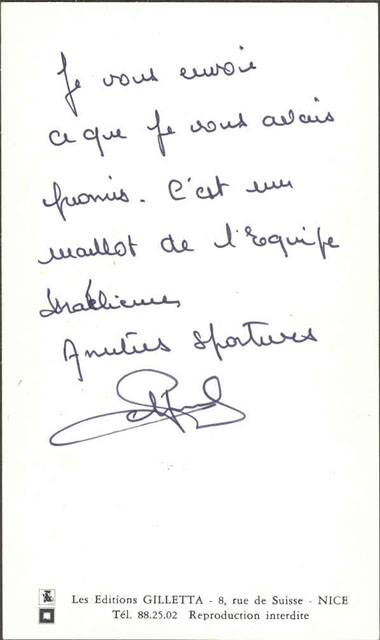 Je vous envoie
ce que je vous avais
promis. C'est un
maillot de l'Equipe
Israélienne
Amitiés sportives
Les Editions GILLETTA - 8, rue de Suisse - NICE
Tél. 88.25.02 Reproduction interdite